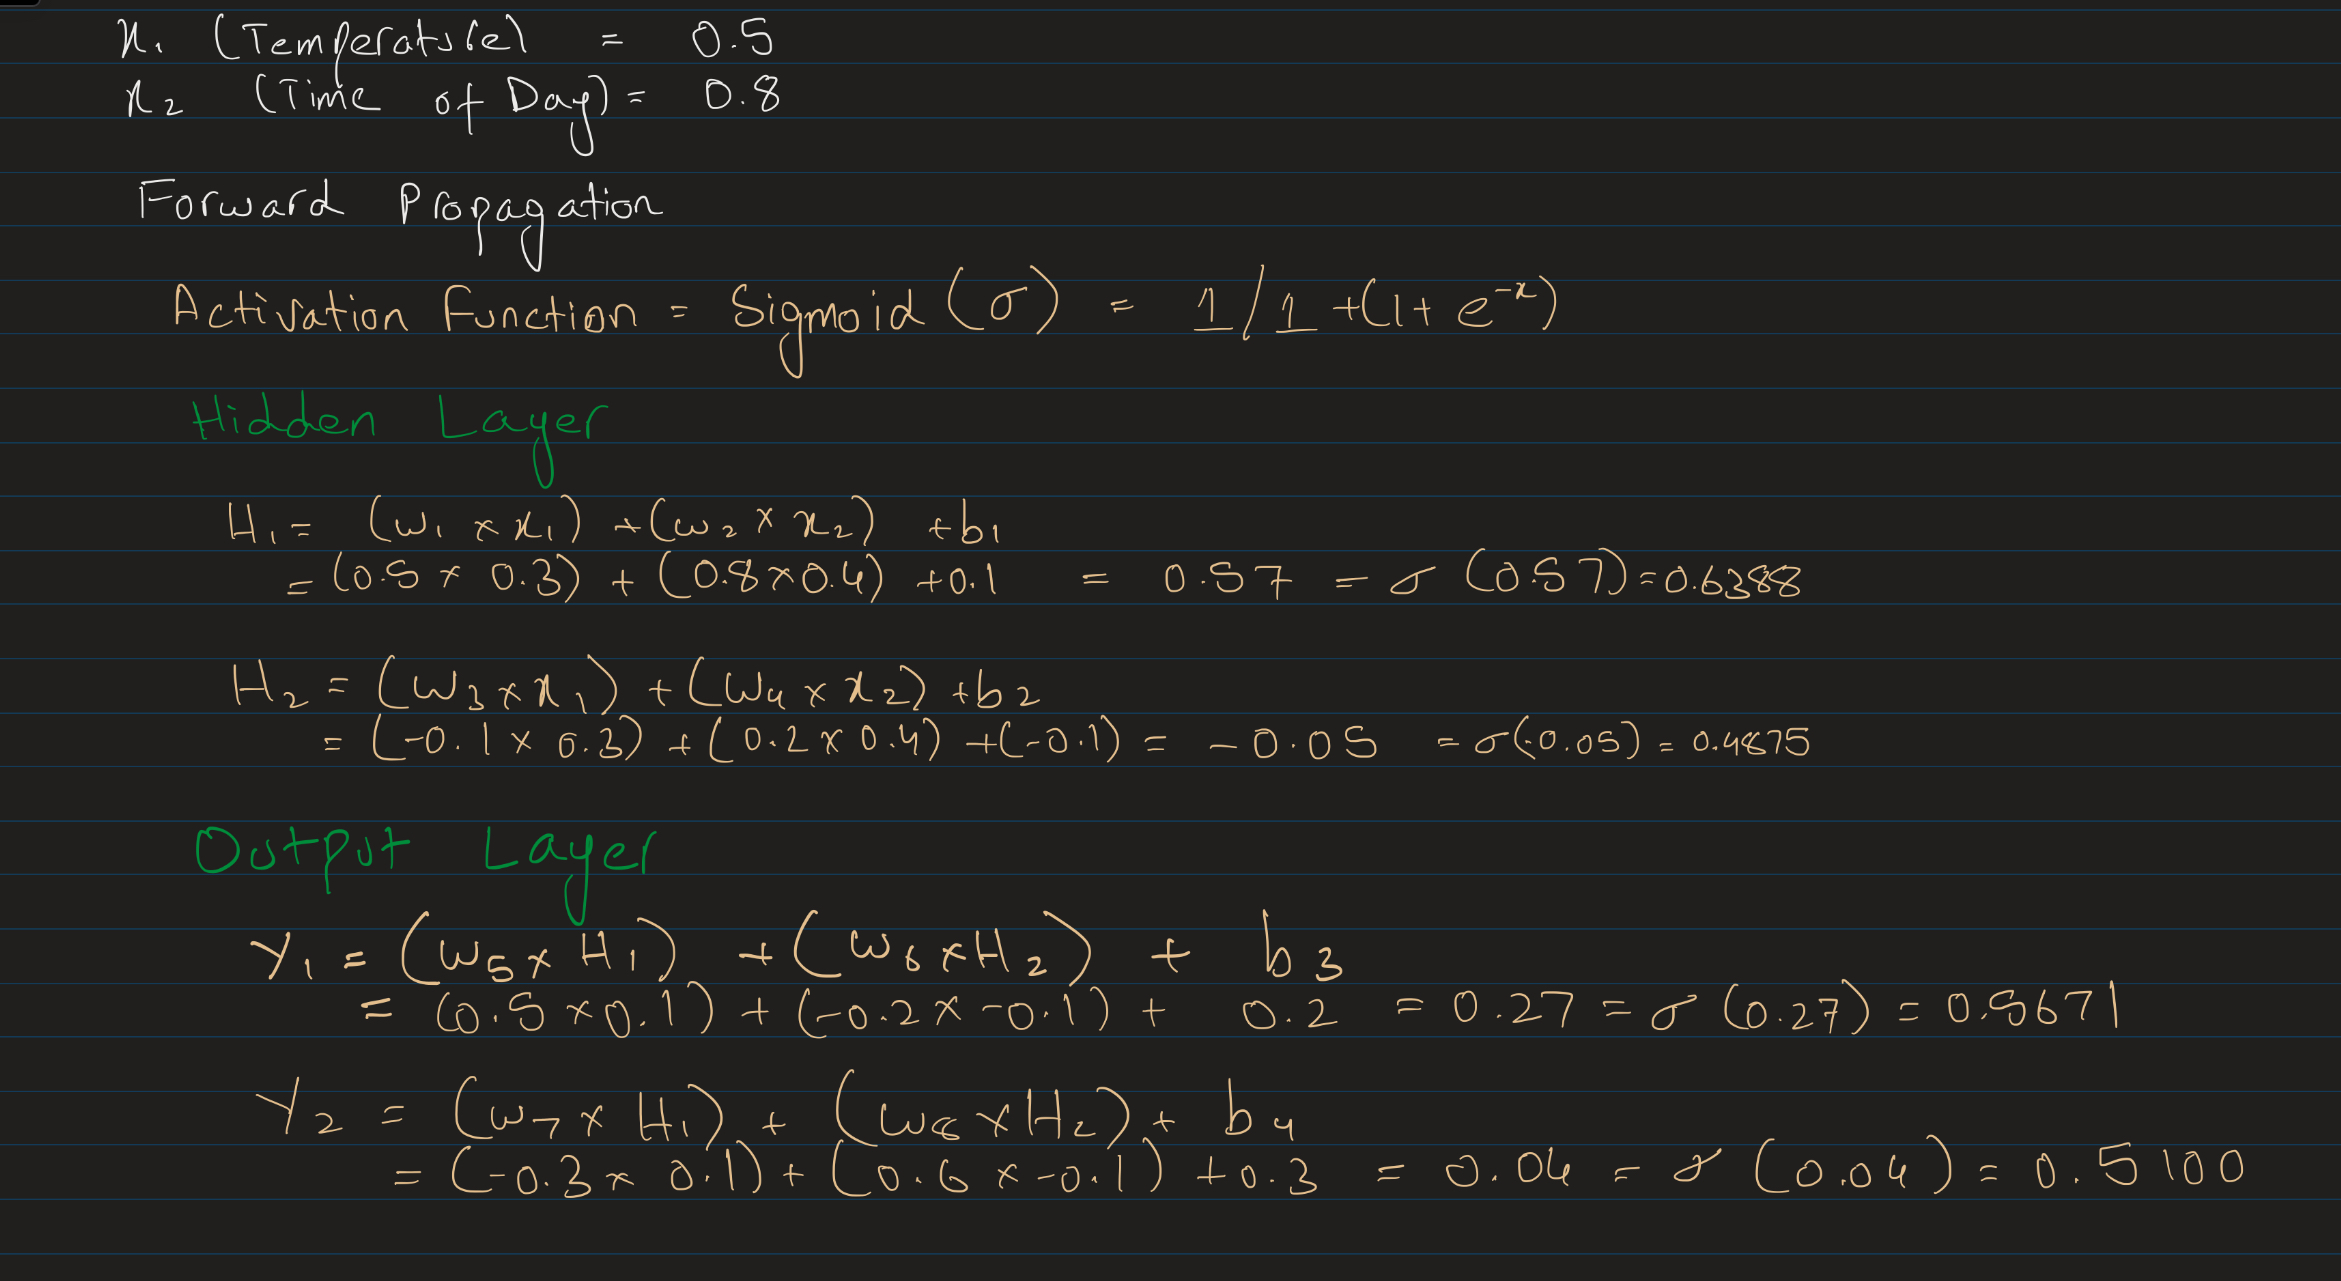 x₁ (Temperature) = 0.5
x₂ (Time of Day) = 0.8
Forward Propagation
Activation Function = Sigmoid (σ) = 1/1 +(1+ e⁻ˣ)
Hidden Layer
H₁ = (w₁ × x₁) + (w₂ × x₂) + b₁
= (0.5 × 0.3) + (0.8×0.4) +0.1 = 0.57 = σ (0.57) = 0.6388
H₂ = (w₃ × x₁) + (w₄ × x₂) + b₂
= (-0.1 × 0.3) + (0.2 × 0.4) +(-0.1) = -0.05 = σ(-0.05) = 0.4875
Output Layer
Y₁ = (w₅ × H₁) + (w₆ × H₂) + b₃
= (0.5 × 0.1) + (-0.2 × -0.1) + 0.2 = 0.27 = σ (0.27) = 0.5671
Y₂ = (w₇ × H₁) + (w₈ × H₂) + b₄
= (-0.3 × 0.1) + (0.6 × -0.1) +0.3 = 0.04 = σ (0.04) = 0.5100